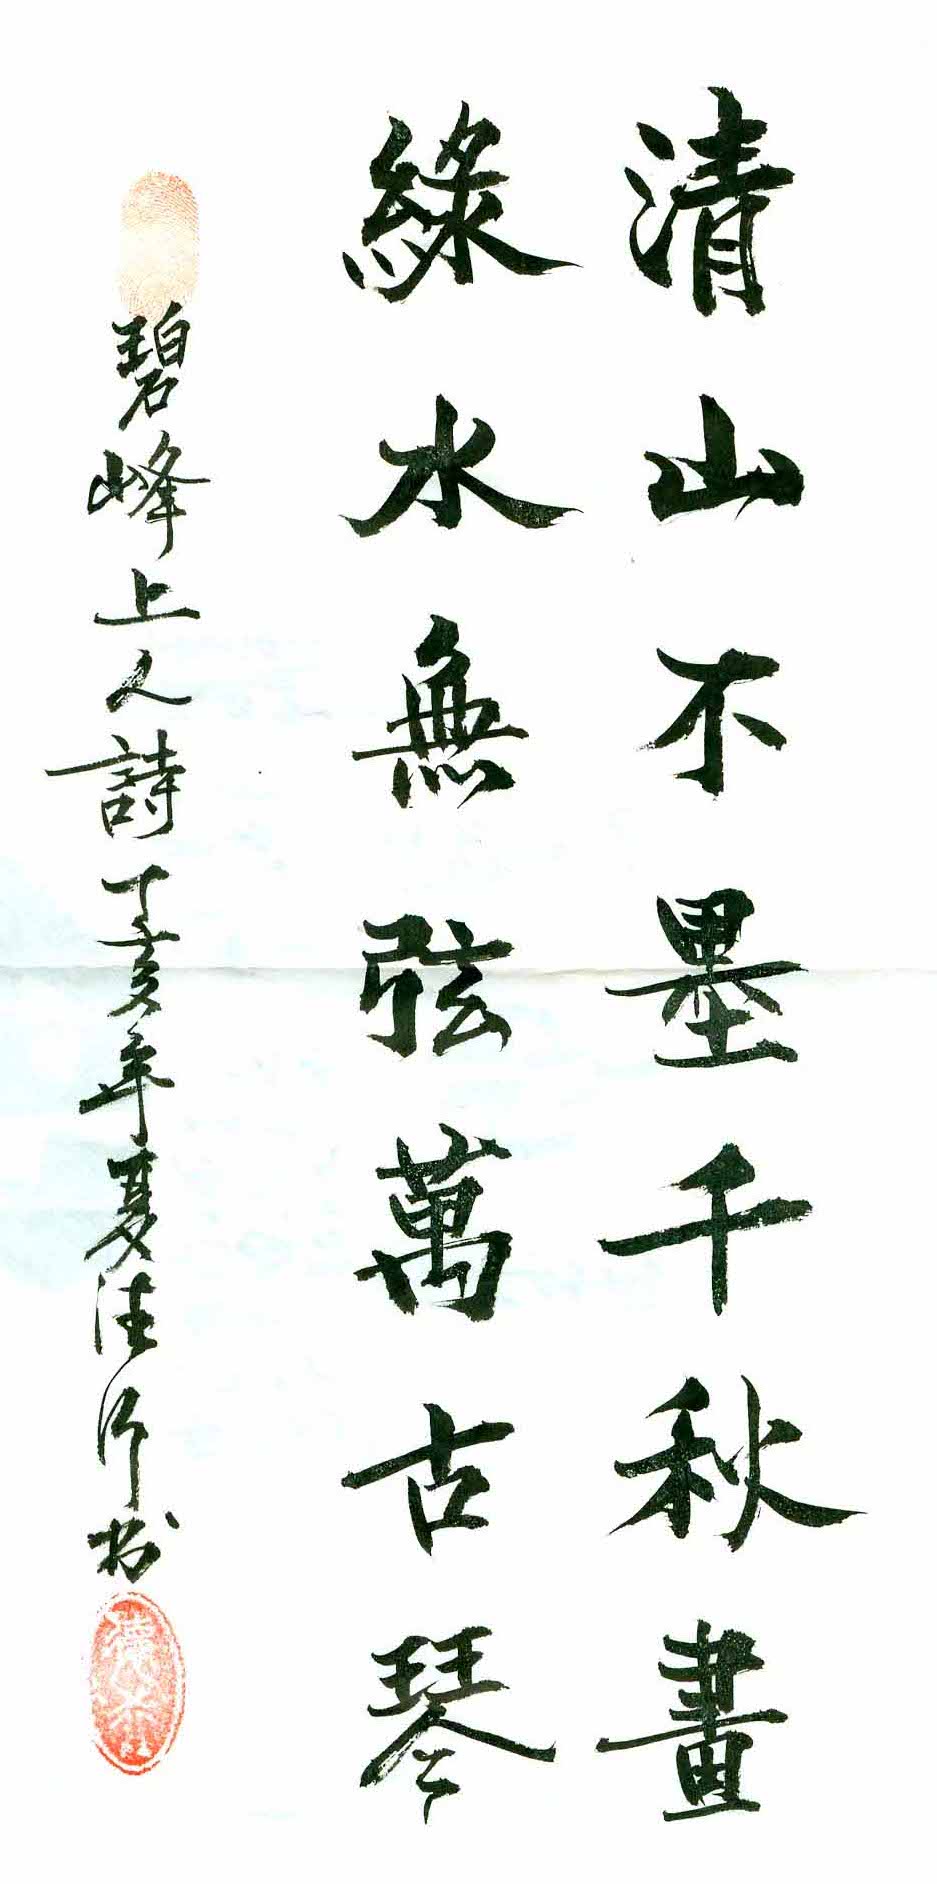 清山不墨千秋畫
綠水無弦萬古琴
碧峰上人詩丁亥年夏法行书